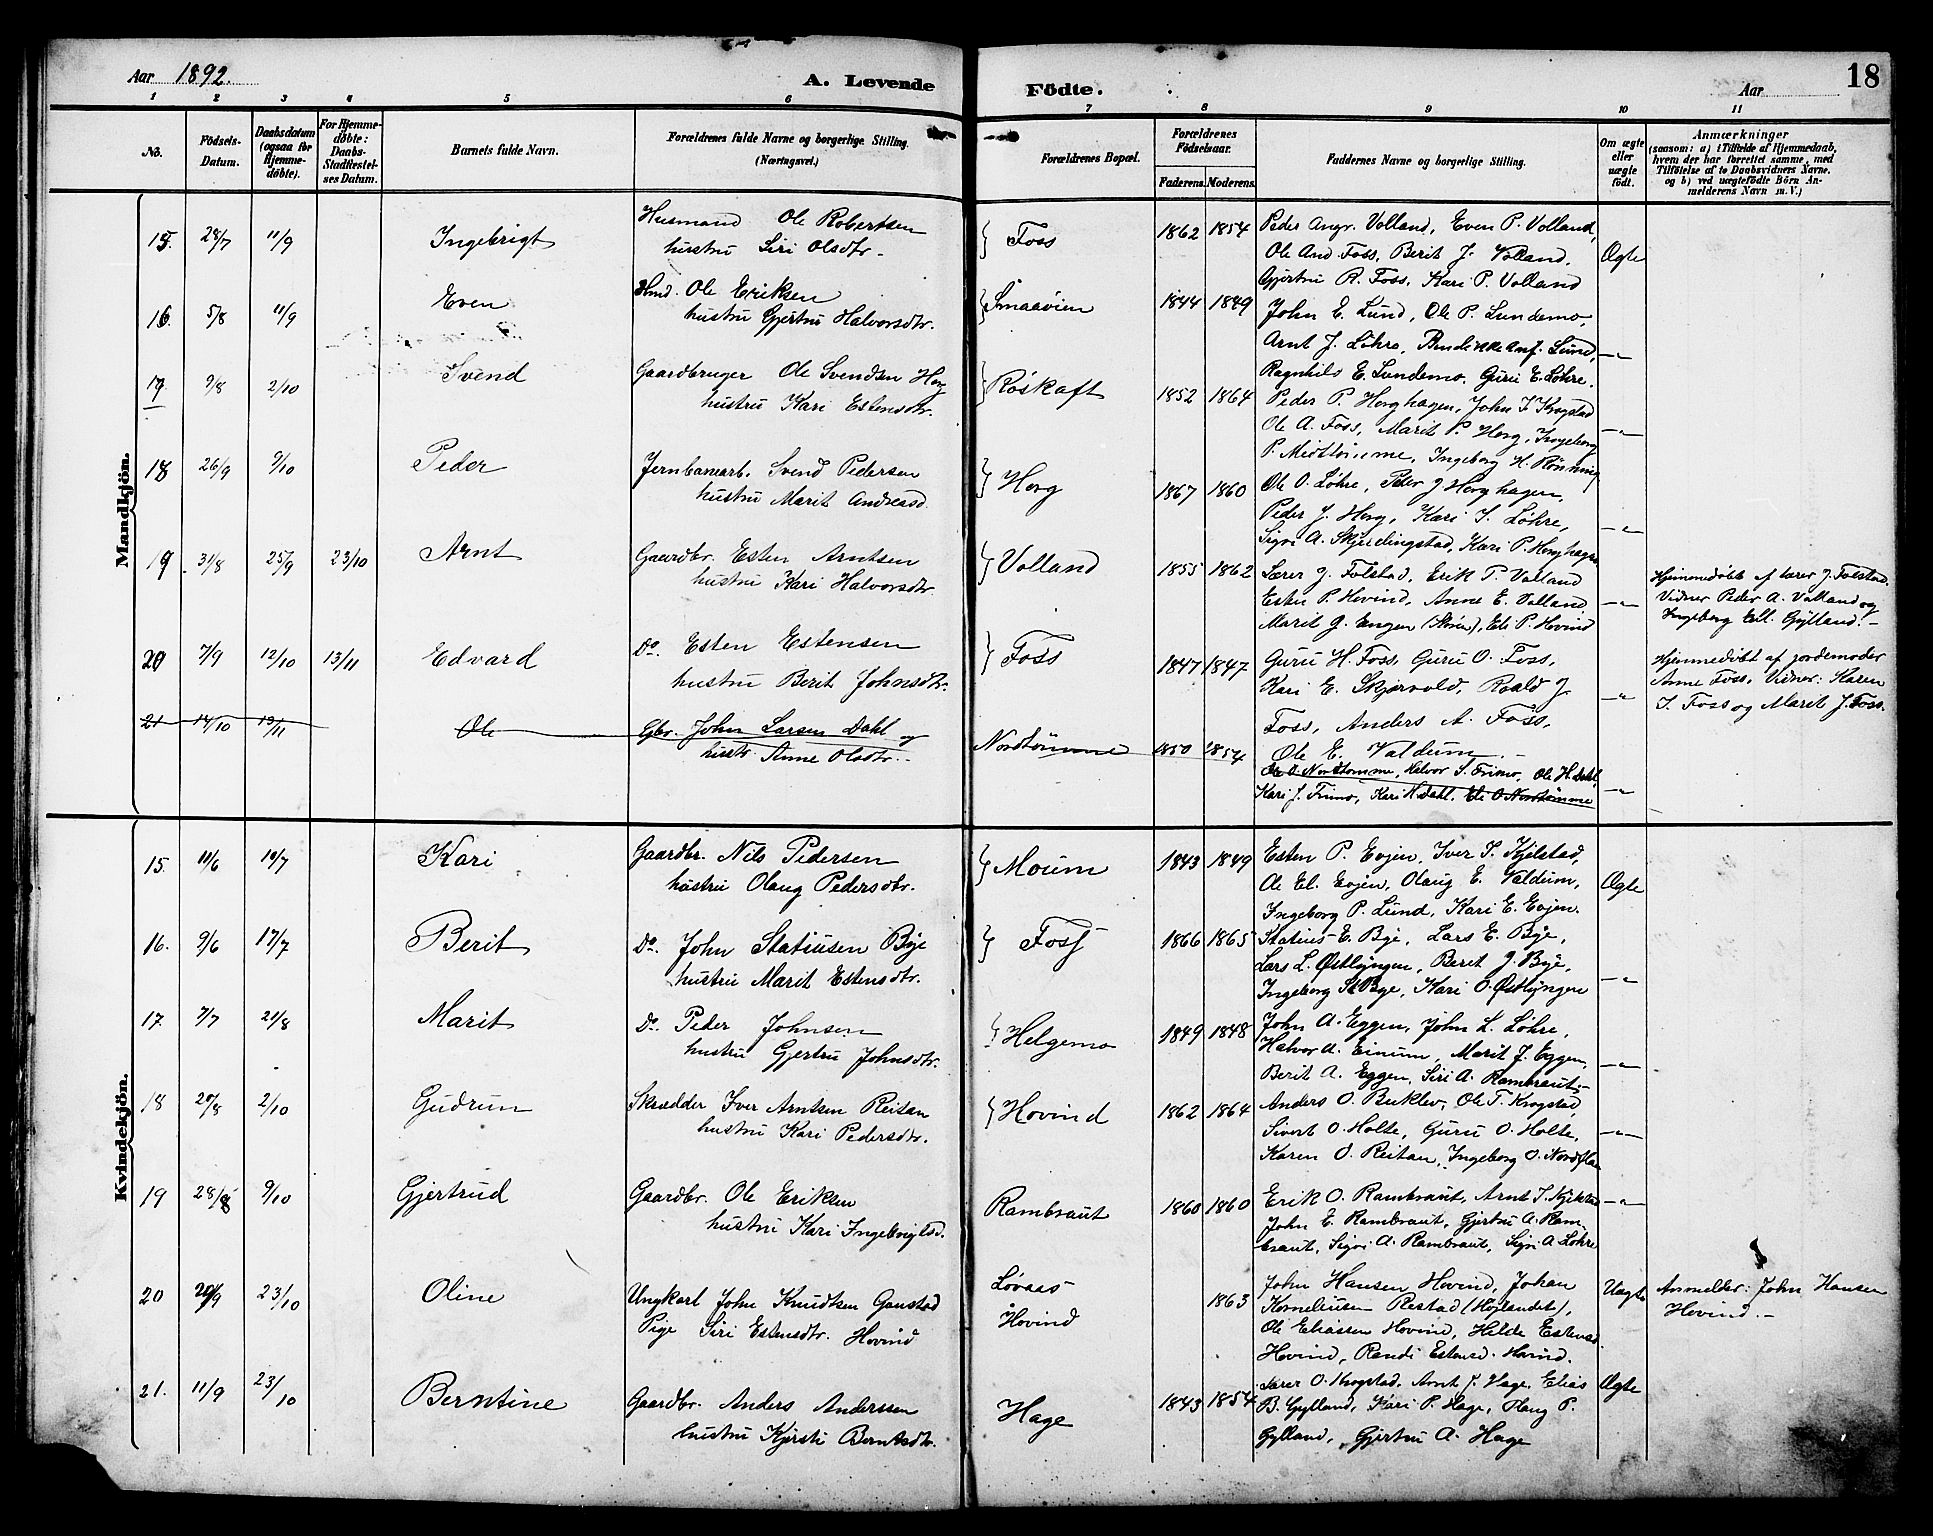 Aar 1892.
A. Levende Födte.
Aar
18
1 2 3 4 5 6 7 8 9 10 11
No.
Födsels-
Datum.
Daabsdatum
(ogsaa for
Hjemme-
døbte).
For Hjemme-
døbte:
Daabs-
Stadfæstel-
ses Datum.
Barnets fulde Navn.
Forældrenes fulde Navne og borgerlige Stilling.
(Næringsvei.)
Forældrenes Bopæl.
Forældrenes
Födselsaar.
Faderens. Moderens.
Faddernes Navne og borgerlige Stilling.
Om ægte
eller
uægte
födt.
Anmærkninger
(saasom: a) i Tilfælde af Hjemmedaab,
hvem der har forrettet samme, med
Tilföielse af to Daabsvidners Navne.
og b) ved uægtefödte Börn An-
melderens Navn m. V.)
Mandkjön.
15. 28/7 11/9 Ingebrigt
Husmand Ole Robertsen
hustru Siri Olsdtr.
Foss 1862 1854
Peder Angr. Volland, Even P. Volland,
Ole And Foss, Berit J. Volland,
Gjertru R. Foss, Kari P. Volland
Ægte
16. 5/8 11/9 Even
Hmd. Ole Eriksen
hustru Gjertru Halvorsdtr.
Smaaøien 1844 1849
John E. Lund, Ole P. Lundemo,
Arnt J. Løhre, Lund,
Ragnhild E. Lundemo, Guru E. Løhre.
—"—
17 9/8 2/10 Svend
Gaardbruger Ole Svendsen Horg
hustru Kari Estensdtr.
Röskaft 1852 1864
Peder P. Horghagen, John I. Krogstad
Ole A. Foss, Marit P. Horg, Ingeborg
P. Midttømme, Ingeborg H. Rønning
—"—
18 26/9 9/10 Peder
Jernbanearb. Svend Pedersen
hustru Marit Andreasd.
Horg 1867 1860
Ole O. Løhre, Peter J Horghagen,
Peder J. Horg, Kari I. Løhre,
Sigri A. Skjerdingstad, Kari P. Horghagen
—"—
19 31/8 25/9 23/10 Arnt
Gaardbr. Esten Arntsen
hustru Kari Halvorsdtr.
Volland 1855 1862
Lærer J. Folstad, Erik P. Volland
Esten P. Hovind, Anne E. Volland
Marit J. Engen (Støren), Eli P. Hovind
—"—
Hjemmedöbt af lærer J. Folstad.
Vidner Peder A. Volland og
Ingeborg Ell. Gylland. –
20 7/9 12/10 13/11 Edvard
Do. Esten Estensen
hustru Berit Johnsdtr.
Foss 1847 1847
Guru H. Foss, Guru O. Foss,
Kari E. Skjærvold, Roald J.
Foss, Anders A. Foss,
Ole E. Valdum –
—"—
Hjemmedöbt af jordemoder
Anne Foss, Vidner: Karen
I. Foss og Marit J. Foss.
21 14/10 13/11 Ole
Gbr. John Larsen Dahl og
hustr. Anne Olsdtr.
Nordtömme 1850 1854
Ole O Nordtomme, Halvor S. Frimo, Ole H. Dahl,
Kari J. Frimo, Kari H. Dahl. Eli O Nordtömme
—"—
Kvindekjön.
15. 11/6 10/7 Kari
Gaardbr. Nils Pedersen
hustru Olaug Pedersdtr.
Moum 1843 1849
Esten P. Evjen, Iver P. Kjelstad,
Ole El. Evjen, Olaug E. Valdum,
Ingeborg P. Lund, Kari E. Evjen.
Ægte
16. 9/6 17/7 Berit
Do. John Statiusen Bye
hustru Marit Estensdtr.
Foss 1866 1865
Statius E. Bye, Lars E. Bye,
Lars L. Østlyngen, Beret J. Bye,
Ingeborg St Bye, Kari O. Østlyngen
—"—
17. 7/7 21/8 Marit
Do. Peder Johnsen
hustru Gjertru Johnsdtr.
Helgemo 1849 1848
John A. Eggen, John L. Løhre,
Halvor A. Einum, Marit J. Eggen,
Berit A. Eggen, Siri A. Rambraut –
—"—
18 20/8 2/10 Gudrun
Skrædder Iver Arntsen Reitan
hustru Kari Pedersdtr.
Hovind 1862 1864
Anders O. Buklev, Ole T. Krogstad,
Sivert O. Holte, Guru O. Holte,
Karen O. Reitan, Ingeborg O. Nordfla
—"—
19 28/8 9/10 Gjertrud
Gaardbr. Ole Eriksen
hustru Kari Ingebrigtsd.
Rambraut 1860 1860
Erik O. Rambraut, Arnt I. Kjelstad
John E. Rambraut, Gjertru A. Ram-
braut, Sigri A. Rambraut, Sigri A Løhre
—"—
20 20/9 23/10 Oline
Ungkarl John Knudtsen Ganstad
Pige Siri Estensdtr. Hovind
Løvaas
Hovind 1863
John Hansen Hovind, Johan
Korneliusen Restad (Høilandet),
Ole Eliassen Hovind, Hilde Estensd.
Hovind, Randi Estensd. Hovind.
Uægte
Anmelder: John Hansen
Hovind. –
21. 11/9 23/10 Berntine
Gaardbr. Anders Anderssen
hustru Kjersti Berntsdtr.
Hage 1843 1854
Lærer O. Krogstad, Arnt J. Hage, Elias
B. Gylland, Kari P. Hage, Haug P.
Gylland, Gjertru A. Hage
Ægte